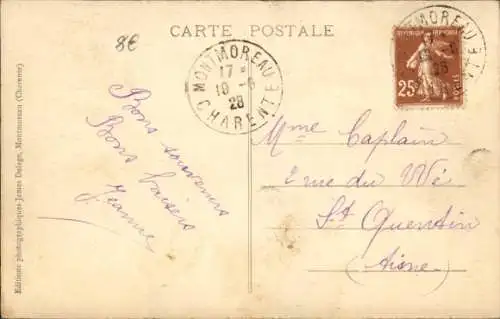 CARTE POSTALE
8€
MONTMOREAU
17 =
10 - 6
28
CHARENTE
MONTMOREAU
28
CHARENTE
REPUBLIQUE FRANÇAISE
25c
POSTES
Bons souvenirs
Bons baisers
Jeanne
Mme Caplain
2 rue du Wé
St Quentin
(Aisne)
Editions photographiques James Delage, Montmoreau (Charente)